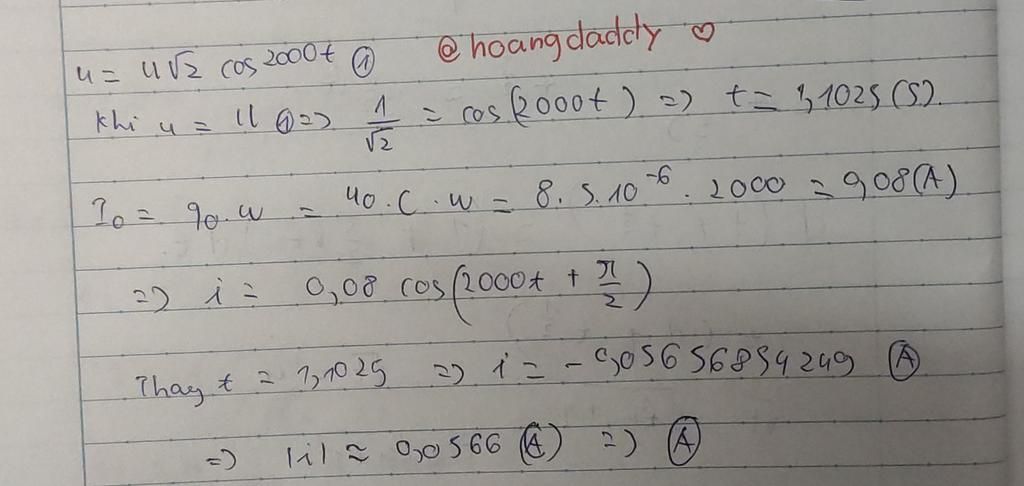 u = U√2 cos 2000t ① @hoangdaddy ♡
Khi u = U ① => 1/√2 = cos(2000t) => t = 1,1025 (s).
I₀ = q₀.w = U₀.C.w = 8.5.10⁻⁶.2000 = 0,08(A)
=> i = 0,08 cos(2000t + π/2)
Thay t = 1,1025 => i = -0,05656854249 (A)
=> |i| ≈ 0,0566 (A) => Ⓐ